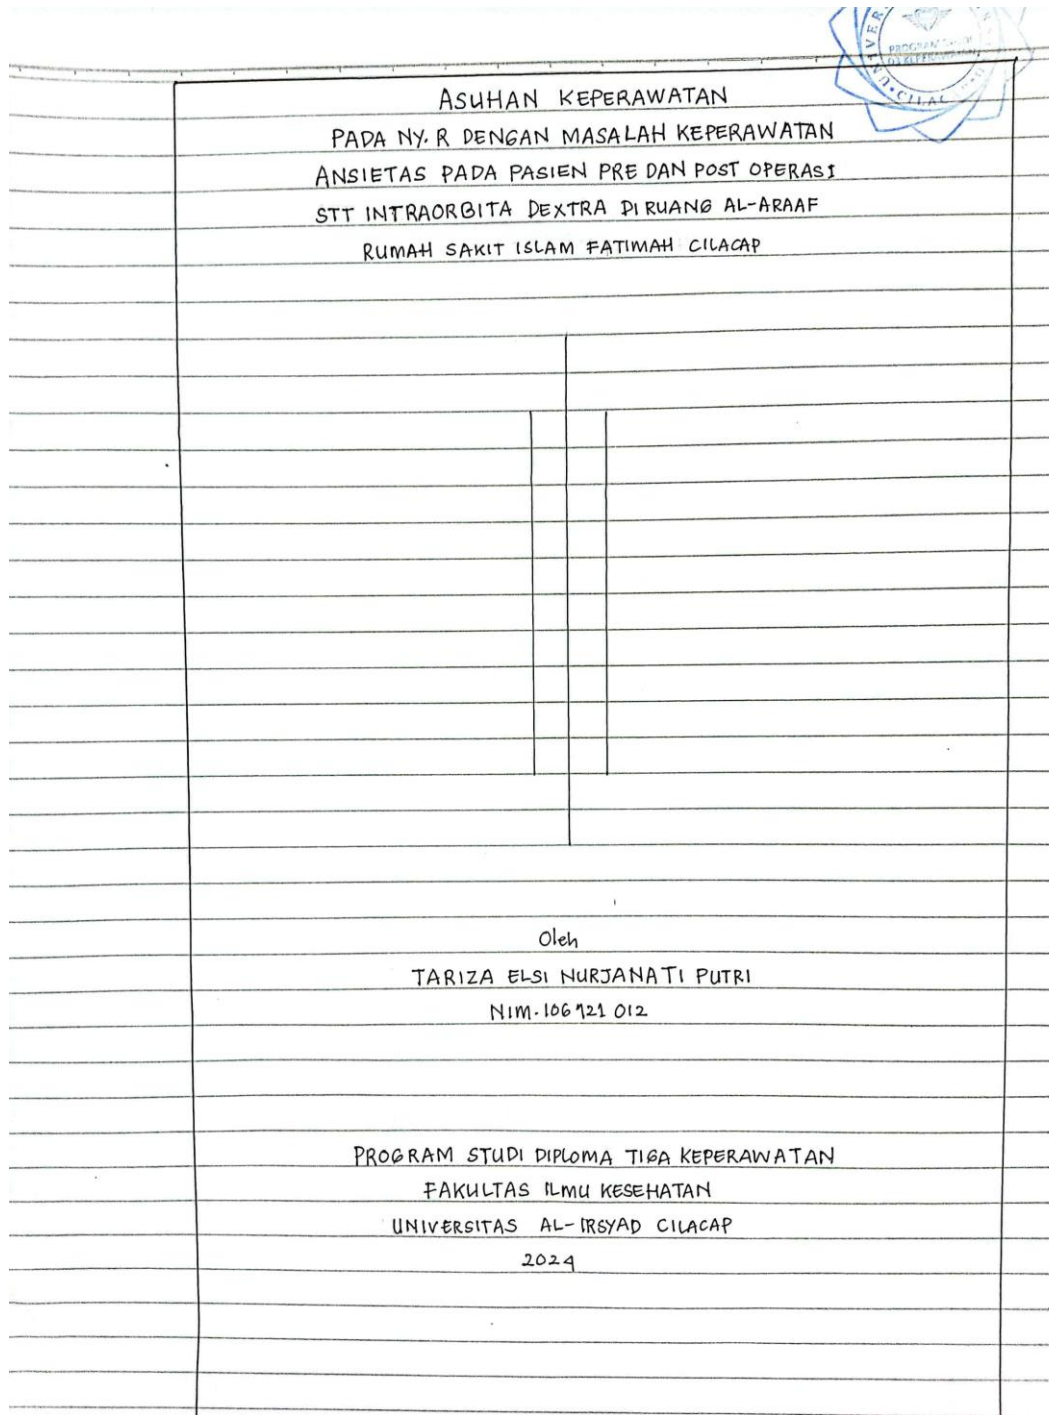 PROGRAM STUDI
D3 KEPERAWATAN
CILACAP
ASUHAN KEPERAWATAN
PADA NY. R DENGAN MASALAH KEPERAWATAN
ANSIETAS PADA PASIEN PRE DAN POST OPERASI
STT INTRAORBITA DEXTRA DI RUANG AL-ARAAF
RUMAH SAKIT ISLAM FATIMAH CILACAP
Oleh
TARIZA ELSI NURJANATI PUTRI
NIM. 106121 012
PROGRAM STUDI DIPLOMA TIGA KEPERAWATAN
FAKULTAS ILMU KESEHATAN
UNIVERSITAS AL-IRSYAD CILACAP
2024